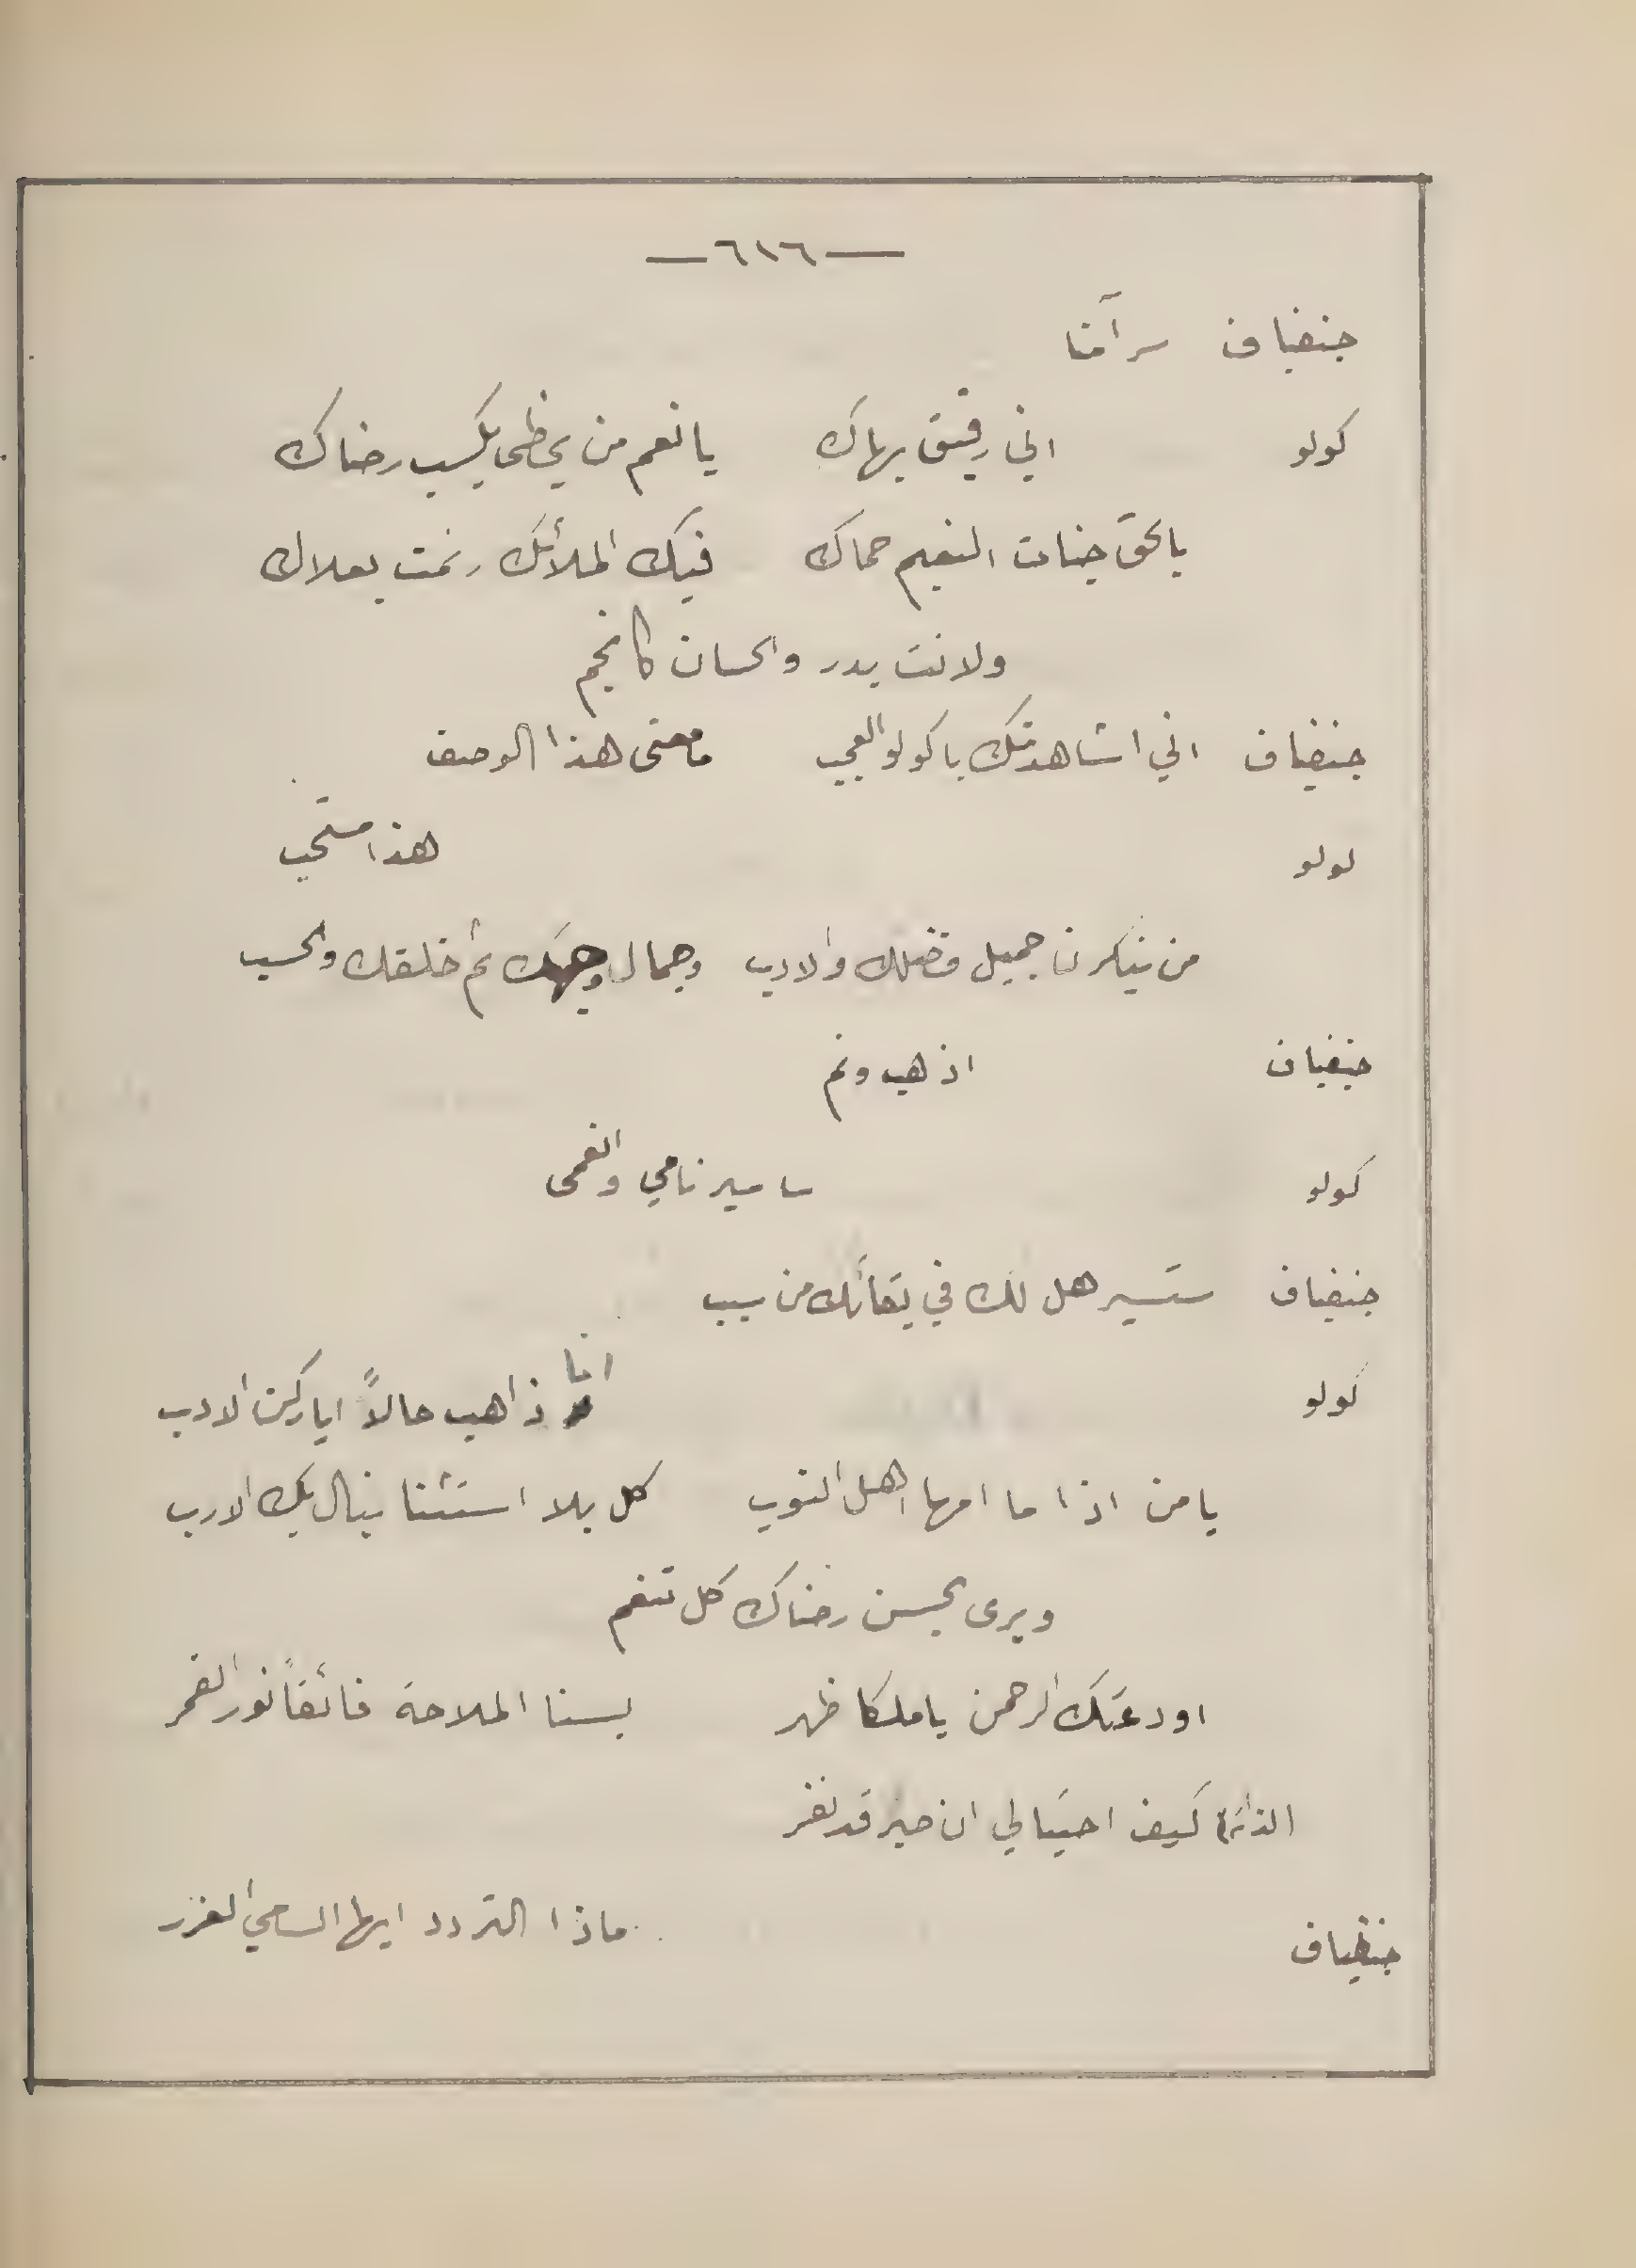 —٦١٦—
جنفياف سر آمنا
كولو اني رقيق بهاك يا نعم من يحظى بكسب رضاك
بالحق جنات النعيم حماك فيك الملائك رنمت بعلاك
ولانت بدر والحسان كانجم
جنفياف اني اشاهد منك يا كولو العجب ما معنى هذا الوصف
لولو هذا مستحب
من ينكرن جميل فضلك والادب وجمال وجهك ثم خلقك والحسب
جنفياف اذهب ونم
كولو ساسير نامي وانعمى
جنفياف ستسير هل لك في بقائك من سبب
كولو انا ذاهب حالاً ايا ركن الادب
يا من اذا ما امها اهل النوب كل بلا استثنا ينال بك الارب
ويرى بحسن رضاك كل تنعم
اودعتك الرحمن يا ملكا ظهر بسنا الملاحة فائقاً نور القمر
كيف احتيالي ان صبر قد نفر
جنفياف ماذا التردد ايها السامي